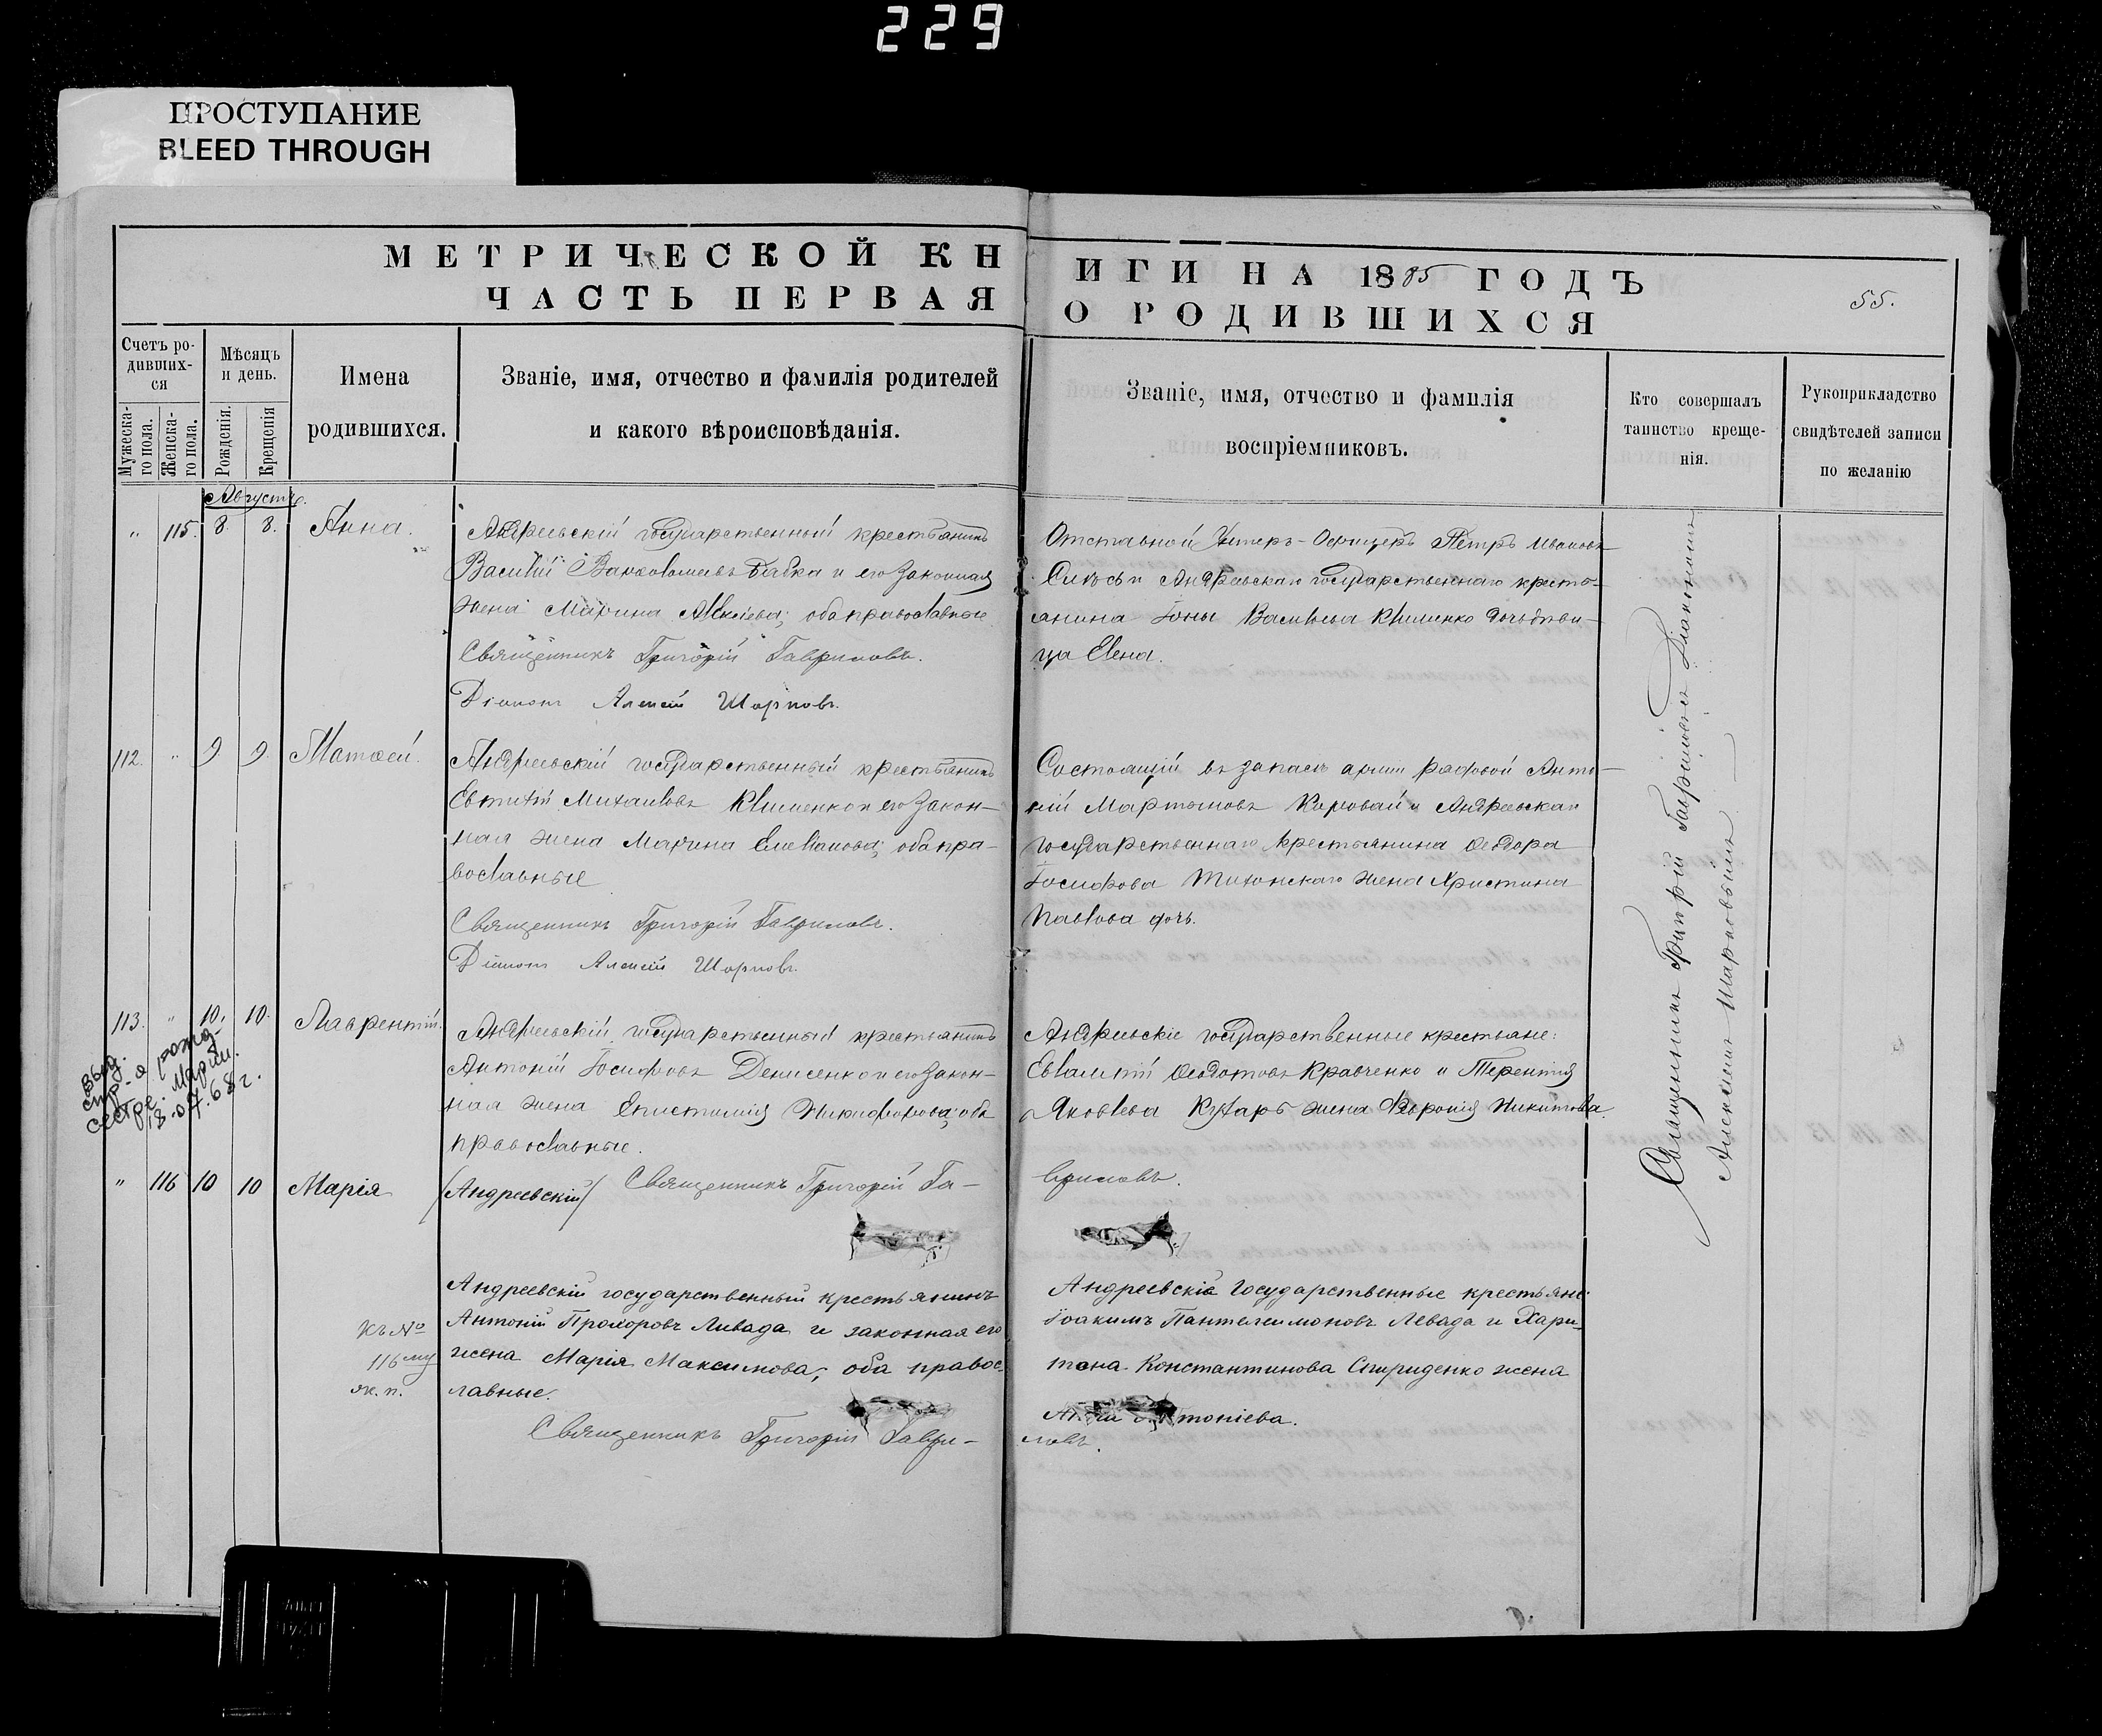 229
ПРОСТУПАНИЕ
BLEED THROUGH
МЕТРИЧЕСКОЙ КНИГИ НА 1885 ГОДЪ
ЧАСТЬ ПЕРВАЯ О РОДИВШИХСЯ
55.
Счетъ ро-
дивших-
ся
Мужеска-
го пола.
Женска-
го пола.
Мѣсяцъ
и день.
Рожденія.
Крещенія
Имена
родившихся.
Званіе, имя, отчество и фамилія родителей
и какого вѣроисповѣданія.
Званіе, имя, отчество и фамилія
воспріемниковъ.
Кто совершалъ
таинство креще-
нія.
Рукоприкладство
свидѣтелей записи
по желанію
Августъ.
" 115. 8. 8. Анна.
Андреевскій государственный крестьянинъ
Василій Бабка и его законная
жена Марина оба православные
Священникъ Григорій Гавриловъ.
Діаконъ Алексій
Отставной Унтеръ-Офицеръ Петръ Ивановъ
и Андреевскаго государственнаго кресть-
янина Іоны Васильева Клименко дочь дѣви-
ца Елена.
112. " 9 9. Матѳей.
Андреевскій государственный крестьянинъ
Евтихій Михаиловъ Клименко и его закон-
ная жена Марина Емеліанова; оба пра-
вославные
Священникъ Григорій Гавриловъ.
Діаконъ Алексій
Состоящій въ запасѣ арміи рядовой Анто-
ній Мартыновъ Коровай и Андреевскаго
государственнаго крестьянина Ѳеодора
Іосифова жена Христина
Павлова дочь.
113. " 10. 10. Лаврентій.
выд.
спр-а рожд-
сестре. Марии.
18.07.68г.
Андреевскій государственный крестьянинъ
Антоній Іосифовъ Денисенко и его закон-
ная жена Епистимія Никифорова; оба
православные.
Андреевскіе государственные крестьяне:
Евлампій Ѳеодотовъ Кравченко и Терентія
Яковлева Кухаръ жена Ѳевронія Никитова.
" 116 10 10 Марія
/Андреевскій/ Священникъ Григорій Га-
вриловъ.
къ №
116му
ж.п.
Андреевскій государственный крестьянинъ
Антоній Прохоровъ Ливада и законная его
жена Марія Максимова; оба правос-
лавные.
Священникъ Григорій Гаври-
ловъ.
Андреевскіе Государственные крестьяне:
Іоакимъ Пантелеимоновъ Левада и Хари-
тона Константинова Спириденко жена
Антоніева.
Священникъ Григорій Гавриловъ съ Діакономъ
Алексіемъ